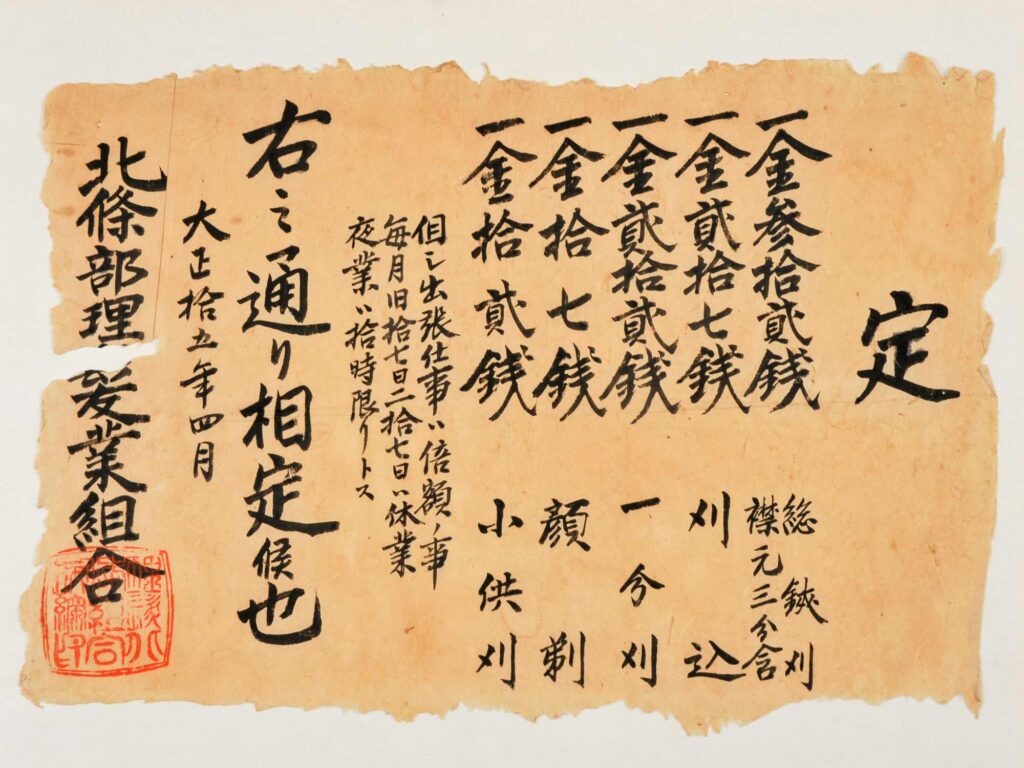 定
一金参拾貳銭 総鋏刈 襟元三分含
一金貳拾七銭 刈込
一金貳拾貳銭 一分刈
一金拾七銭 顔剃
一金拾貳銭 小供刈
但シ出張仕事ハ倍額ノ事
毎月旧拾七日二拾七日ハ休業
夜業ハ拾時限リトス
右之通り相定候也
大正拾五年四月
北條部理髪業組合